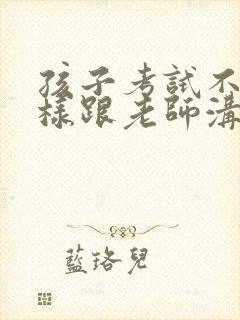 孩子考試不
樣跟老師溝
藍珞兒